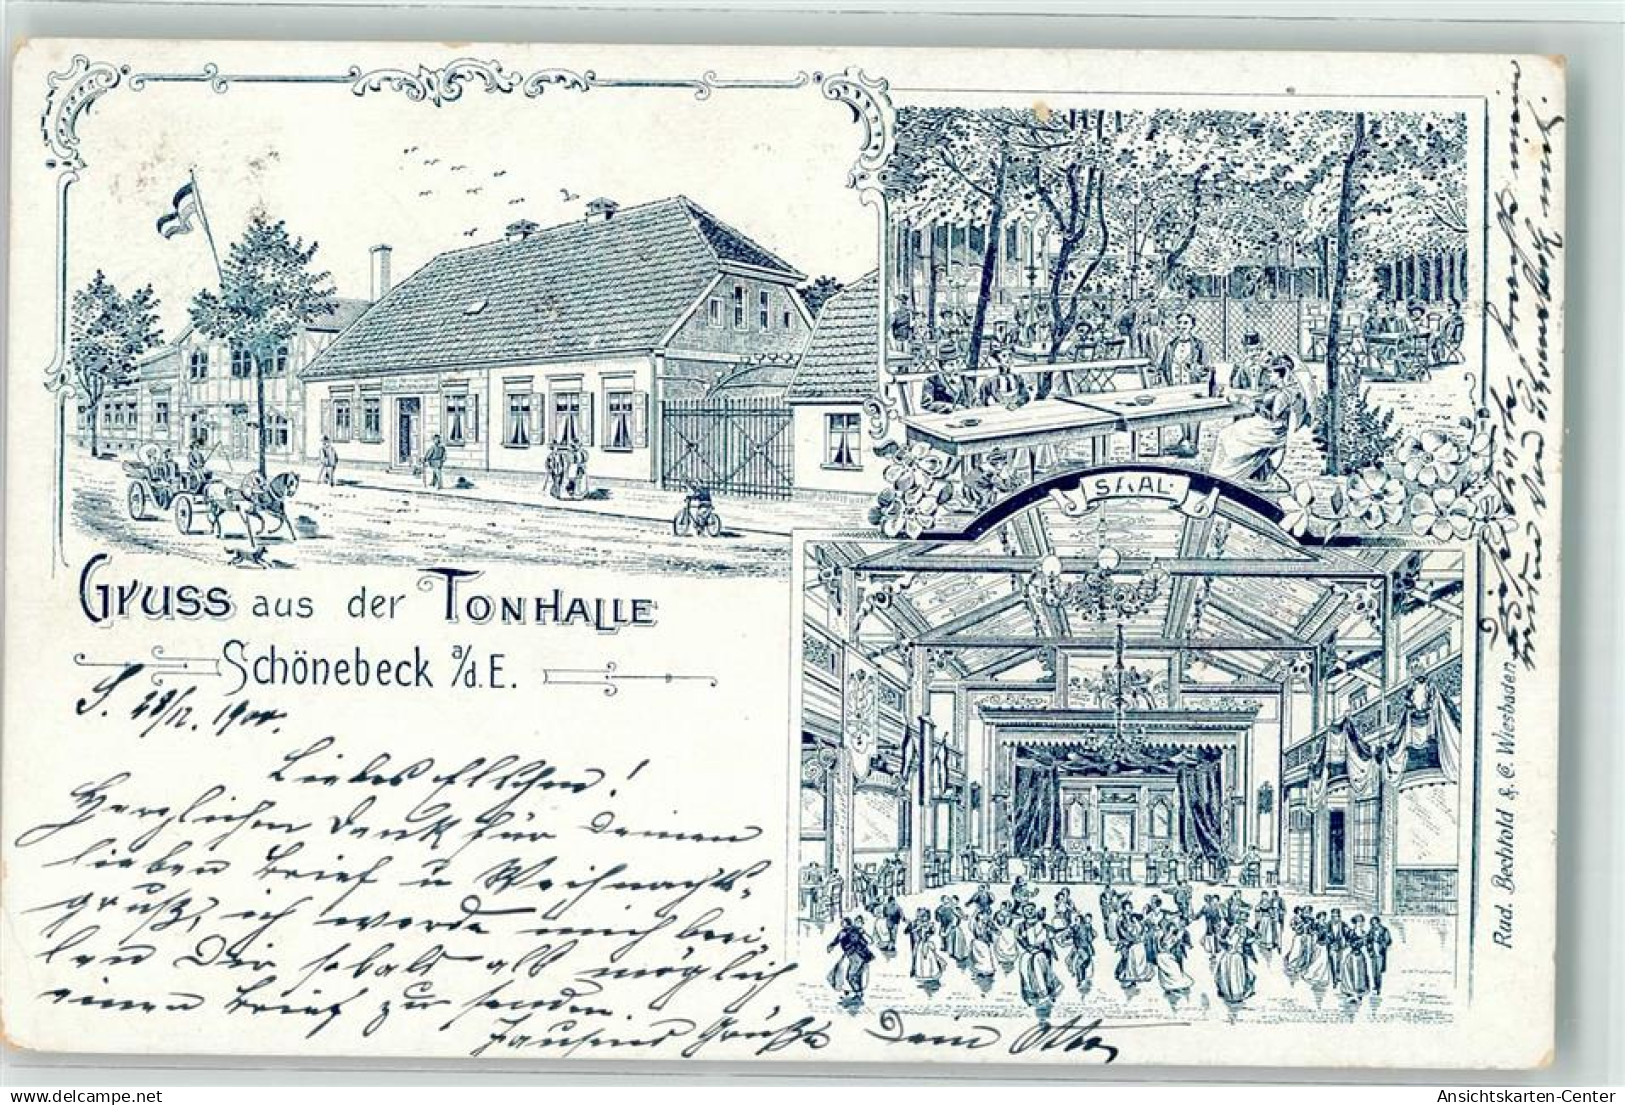 SAAL
Gruss aus der TONHALLE
Schönebeck a/d. E.
S. 28/12. 1900.
Liebes Elschen!
Herzlichen Dank für deinen
lieben Brief u Weihnachts-
gruß, ich werde mich beei-
len Dir sobald als möglich
einen Brief zu senden.
Tausend Grüße Dein Otto
Rud. Bechtold & C. Wiesbaden.
Ansichtskarten-Center